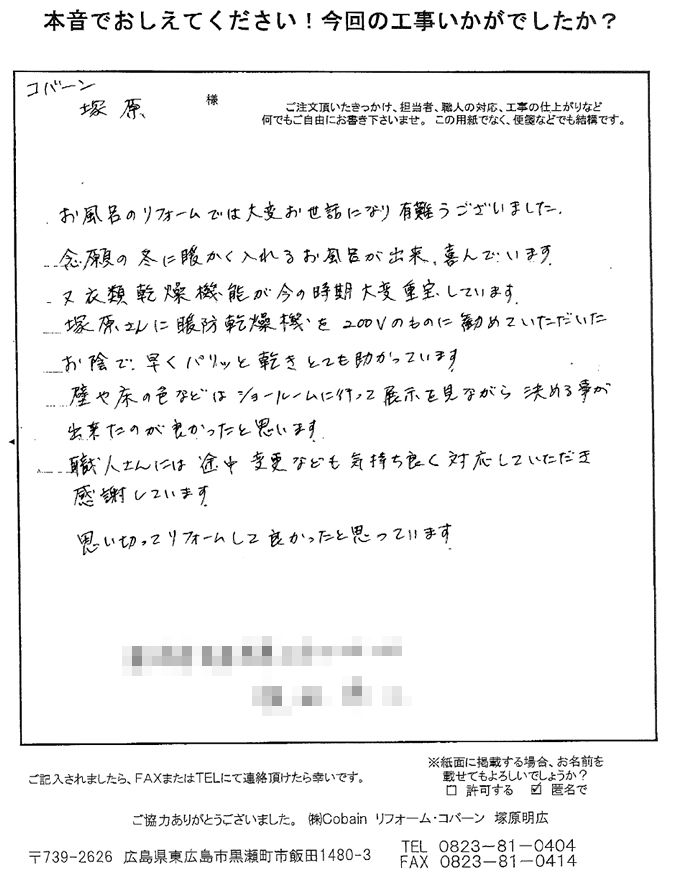 本音でおしえてください！今回の工事いかがでしたか？
コバーン
塚原 様
ご注文頂いたきっかけ、担当者、職人の対応、工事の仕上がりなど
何でもご自由にお書き下さいませ。この用紙でなく、便箋などでも結構です。
お風呂のリフォームでは大変お世話になり有難うございました。
念願の冬に暖かく入れるお風呂が出来、喜んでいます
又衣類乾燥機能が今の時期大変重宝しています
塚原さんに暖防乾燥機を200Vのものに勧めていただいた
お陰で、早くパリッと乾きとても助かっています
壁や床の色などはショールームに行って展示を見ながら決める事が
出来たのが良かったと思います
職人さんには途中変更なども気持ち良く対応していただき
感謝しています
思い切ってリフォームして良かったと思っています
ご記入されましたら、FAXまたはTELにて連絡頂けたら幸いです。
※紙面に掲載する場合、お名前を
載せてもよろしいでしょうか？
□ 許可する ☑ 匿名で
ご協力ありがとうございました。㈱Cobain リフォーム・コバーン 塚原明広
〒739-2626 広島県東広島市黒瀬町市飯田1480-3
TEL 0823-81-0404
FAX 0823-81-0414